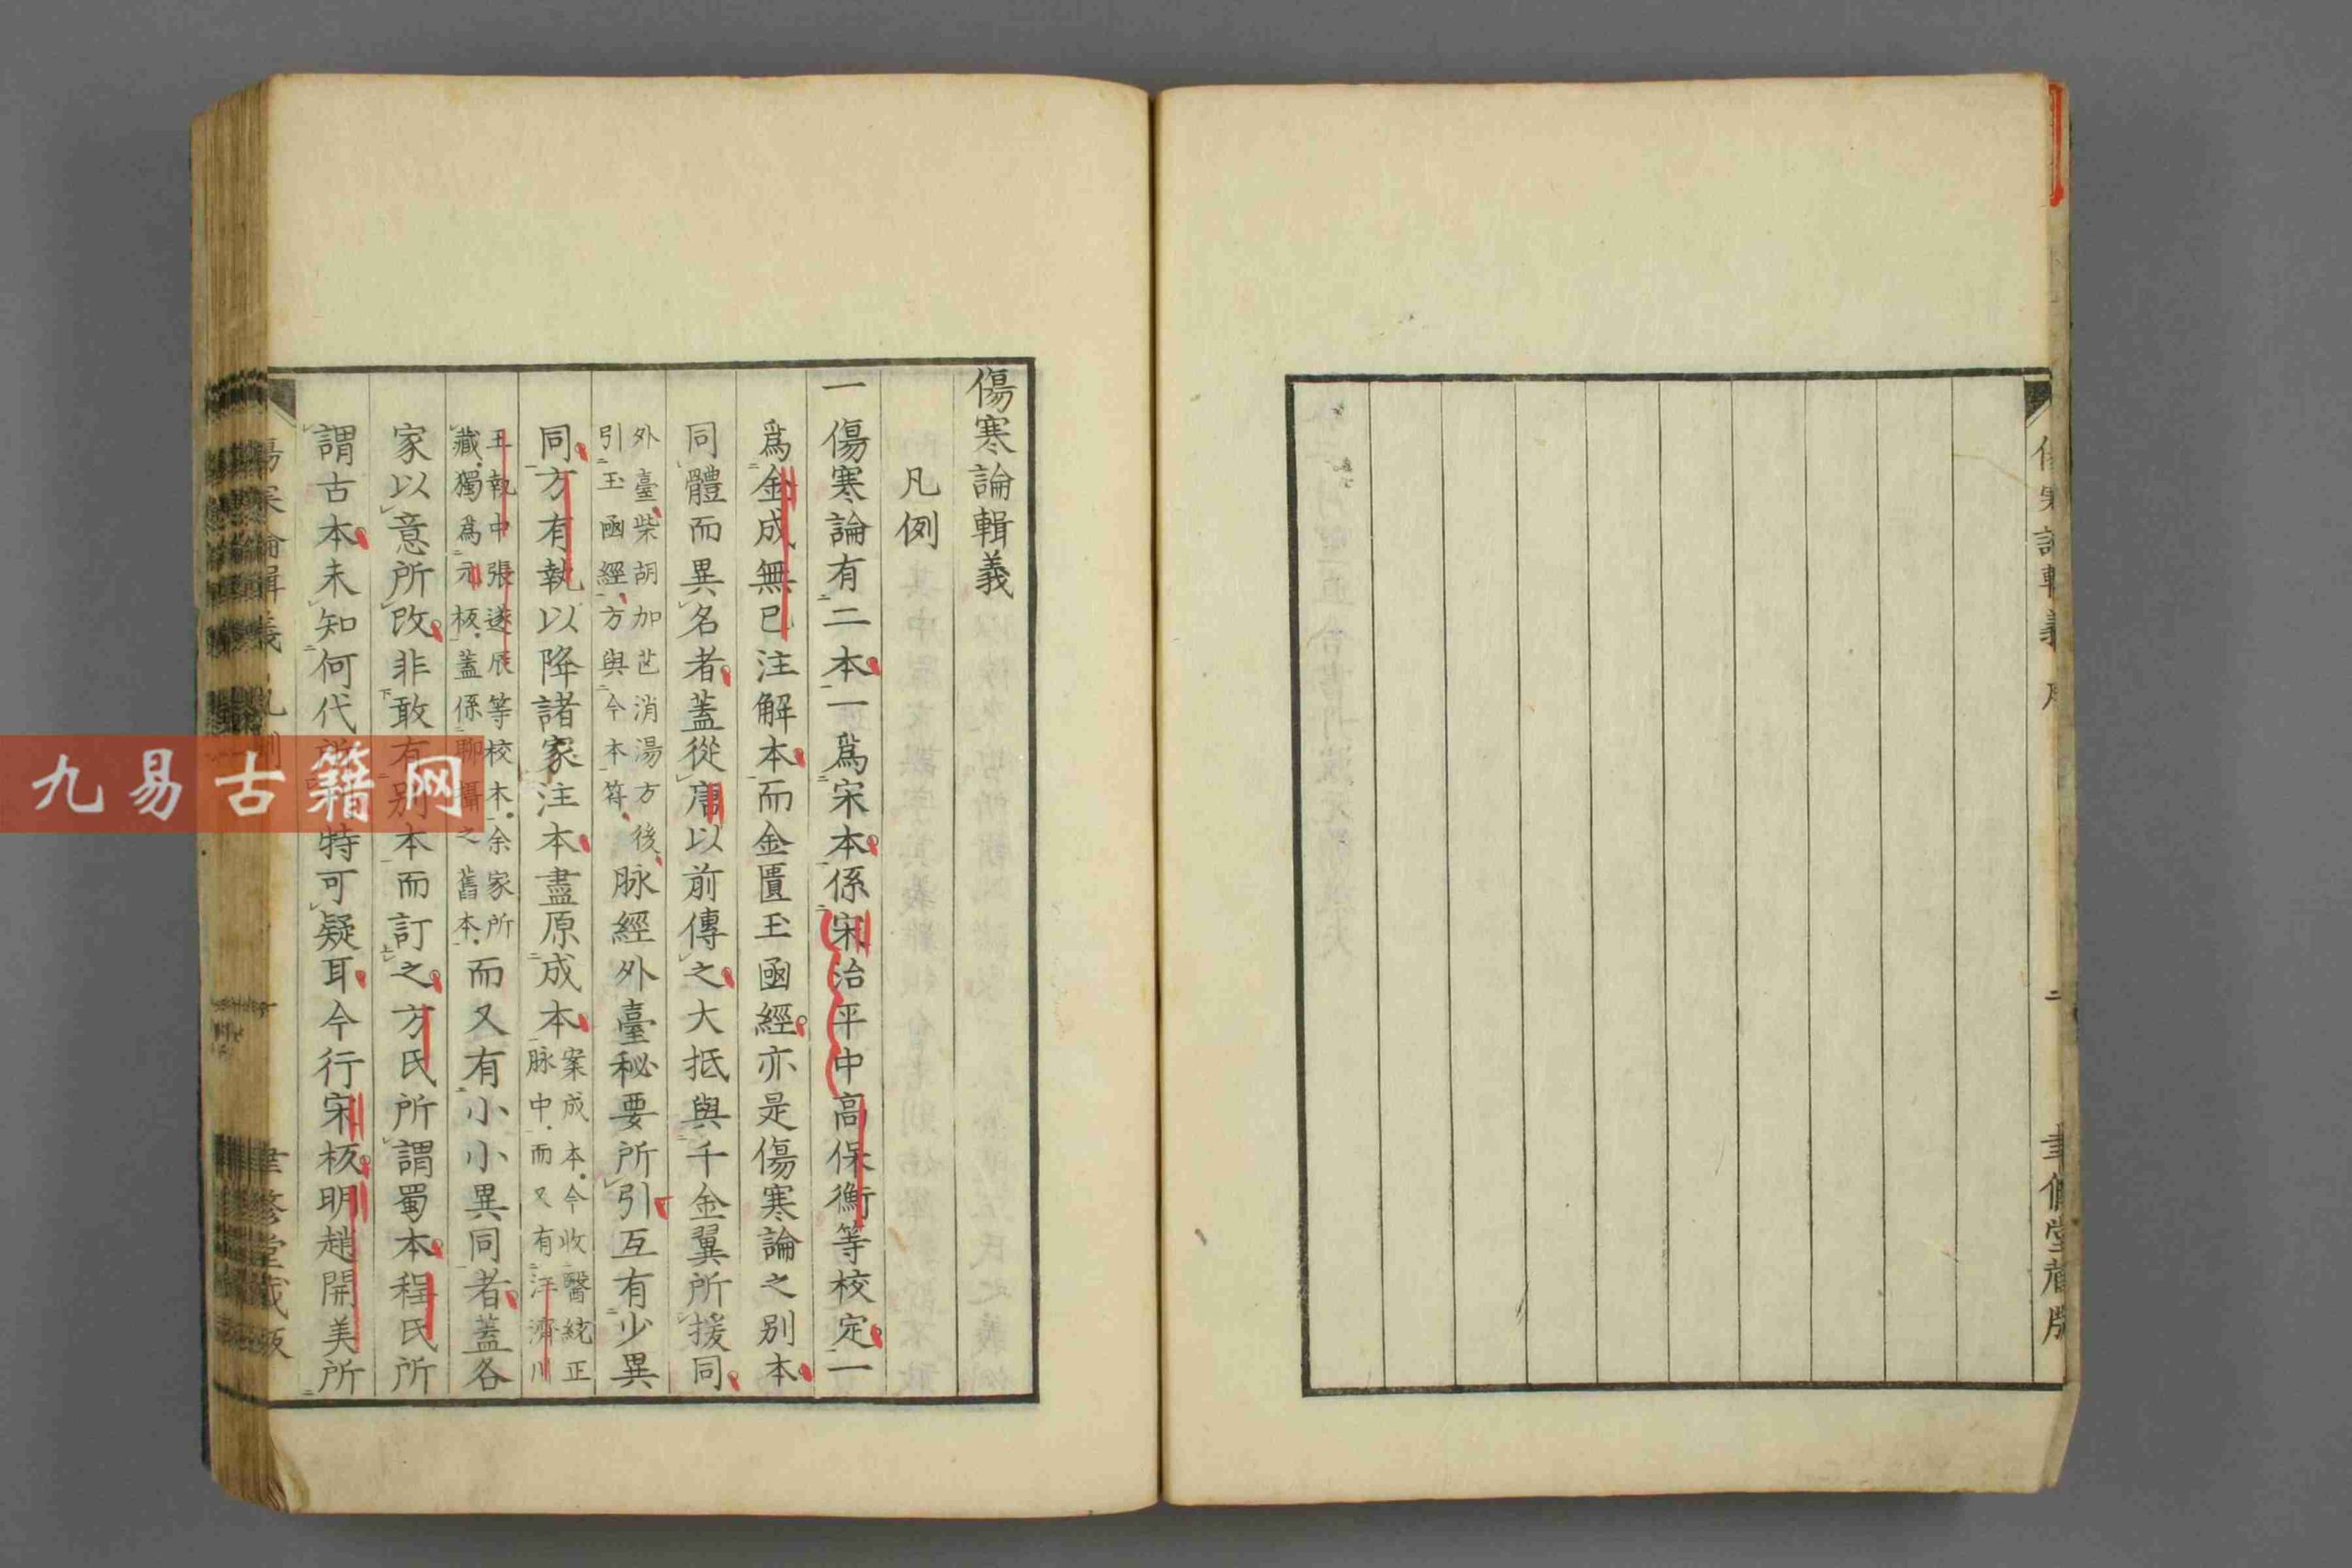 傷寒論輯義
凡例
一傷寒論有二本一爲宋本係宋治平中高保衡等校定一
爲金成無已注解本而金匱玉函經亦是傷寒論之別本
同體而異名者蓋從唐以前傳之大抵與千金翼所援同
外臺柴胡加芒消湯方後
引玉函經方與今本符
脉經外臺秘要所引互有少異
同方有執以降諸家注本盡原成本
案成本今收醫統正
脉中而又有汪濟川
王執中張遂辰等校本余家所
藏獨爲元板蓋係聊攝之舊本
而又有小小異同者蓋各
家以意所改非敢有別本而訂之方氏所謂蜀本程氏所
謂古本未知何代所特可疑耳今行宋板明趙開美所
聿修堂藏版
九易古籍网